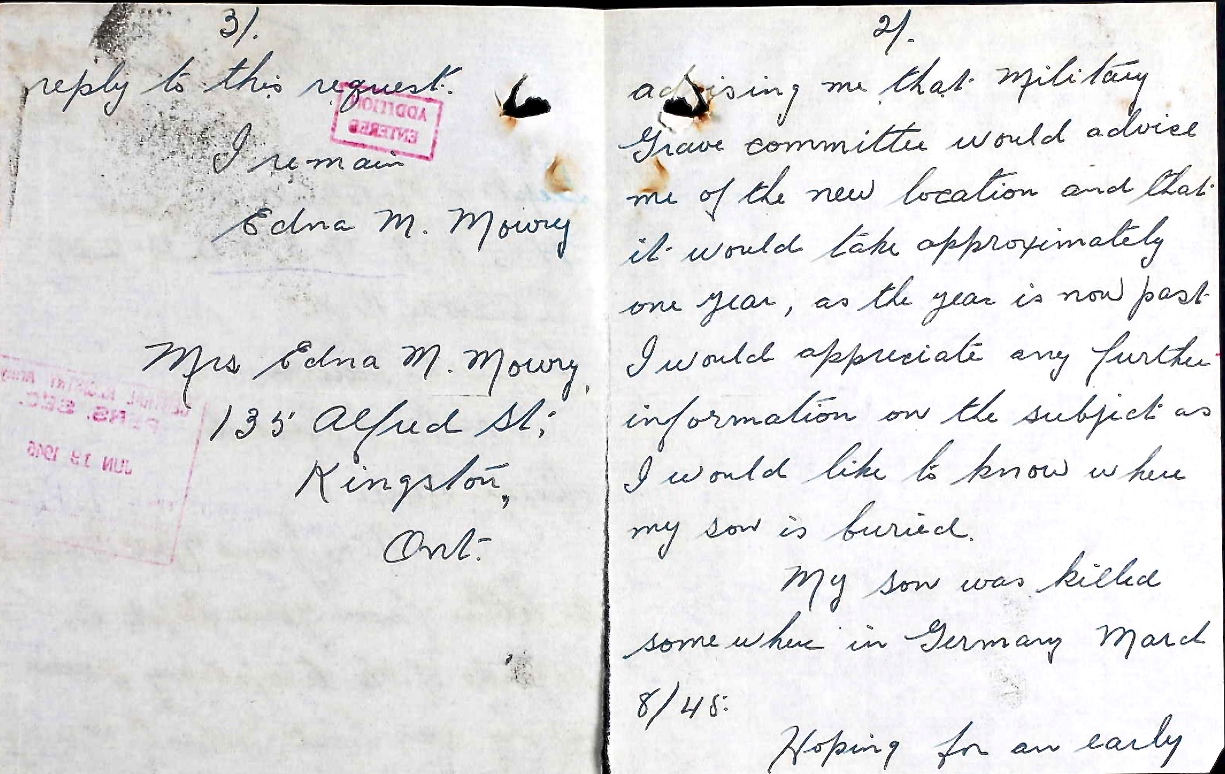 2/.
advising me that Military
Grave committee would advise
me of the new location and that
it would take approximately
one year, as the year is now past
I would appreciate any further
information on the subject as
I would like to know where
my son is buried.
My son was killed
somewhere in Germany March
8/45.
Hoping for an early
3/.
reply to this request.
I remain
Edna M. Mowry
Mrs Edna M. Mowry,
135 Alfred St;
Kingston,
Ont.
ADDITION
ENTERED
JUN 19 1946